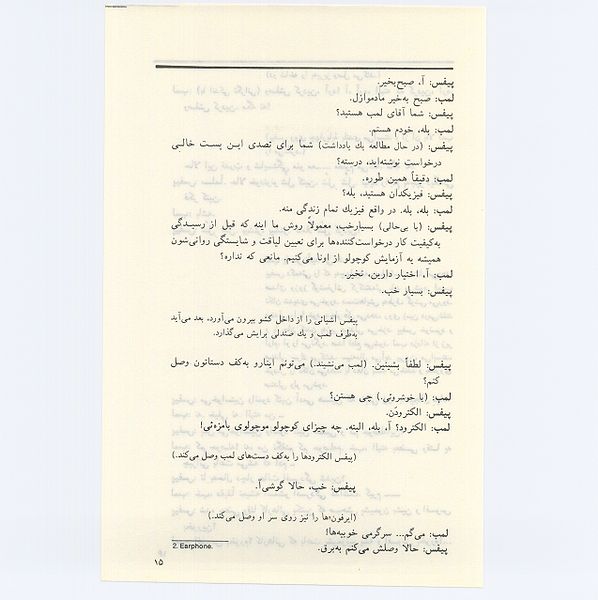 پیفس: آ، صبح‌بخیر.
لمب: صبح به‌خیر مادموازل.
پیفس: شما آقای لمب هستید؟
لمب: بله، خودم هستم.
پیفس: (در حال مطالعه یك یادداشت) شما برای تصدی این پست خالی
درخواست نوشته‌اید، درسته؟
لمب: دقیقاً همین طوره.
پیفس: فیزیکدان هستید، بله؟
لمب: بله، بله. در واقع فیزیك تمام زندگی منه.
پیفس: (با بی‌حالی) بسیارخب، معمولاً روش ما اینه که قبل از رسیدگی
به‌کیفیت کار درخواست‌کننده‌ها برای تعیین لیاقت و شایستگی روانی‌شون
همیشه یه آزمایش کوچولو از اونا می‌کنیم. مانعی که نداره؟
لمب: آ، اختیار دارین، نخیر.
پیفس: بسیار خب.
پیفس اشیائی را از داخل کشو بیرون می‌آورد، بعد می‌آید
به‌طرف لمب و یك صندلی برایش می‌گذارد.
پیفس: لطفاً بشینین. (لمب می‌نشیند.) می‌تونم اینارو به‌کف دستاتون وصل
کنم؟
لمب: (با خوشروئی.) چی هستن؟
پیفس: الکترودن.
لمب: الکترود؟ آ، بله، البته. چه چیزای کوچولو موچولوی بامزه‌ئی!
(پیفس الکترودها را به‌کف دست‌های لمب وصل می‌کند.)
پیفس: خب، حالا گوشی‌آ.
(ایرفون²ها را نیز روی سر او وصل می‌کند.)
لمب: می‌گم... سرگرمی خوبیه‌ها!
پیفس: حالا وصلش می‌کنم به‌برق.
2. Earphone.
۱۵